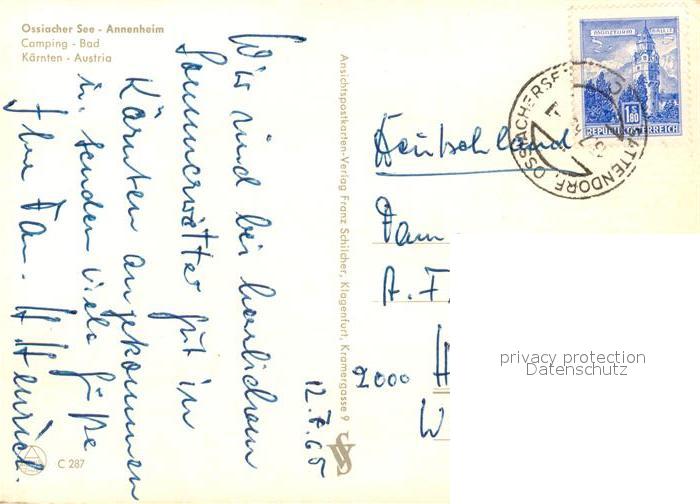 Ossiacher See - Annenheim
Camping - Bad
Kärnten - Austria
Wir sind bei herrlichem
Sommerwetter gut in
Kärnten angekommen
u. senden viele Grüße
Ihre Fam. H. Heinrich.
12.7.65
C 287
Ansichtspostkarten-Verlag Franz Schilcher, Klagenfurt, Kramergasse 9
MÜNZTURM HALL i.T.
S 1.80
REPUBLIK ÖSTERREICH
SATTENDORF, OSSIACHERSEE
Deutschland
Fam
A. F
2000 H
W
privacy protection
Datenschutz